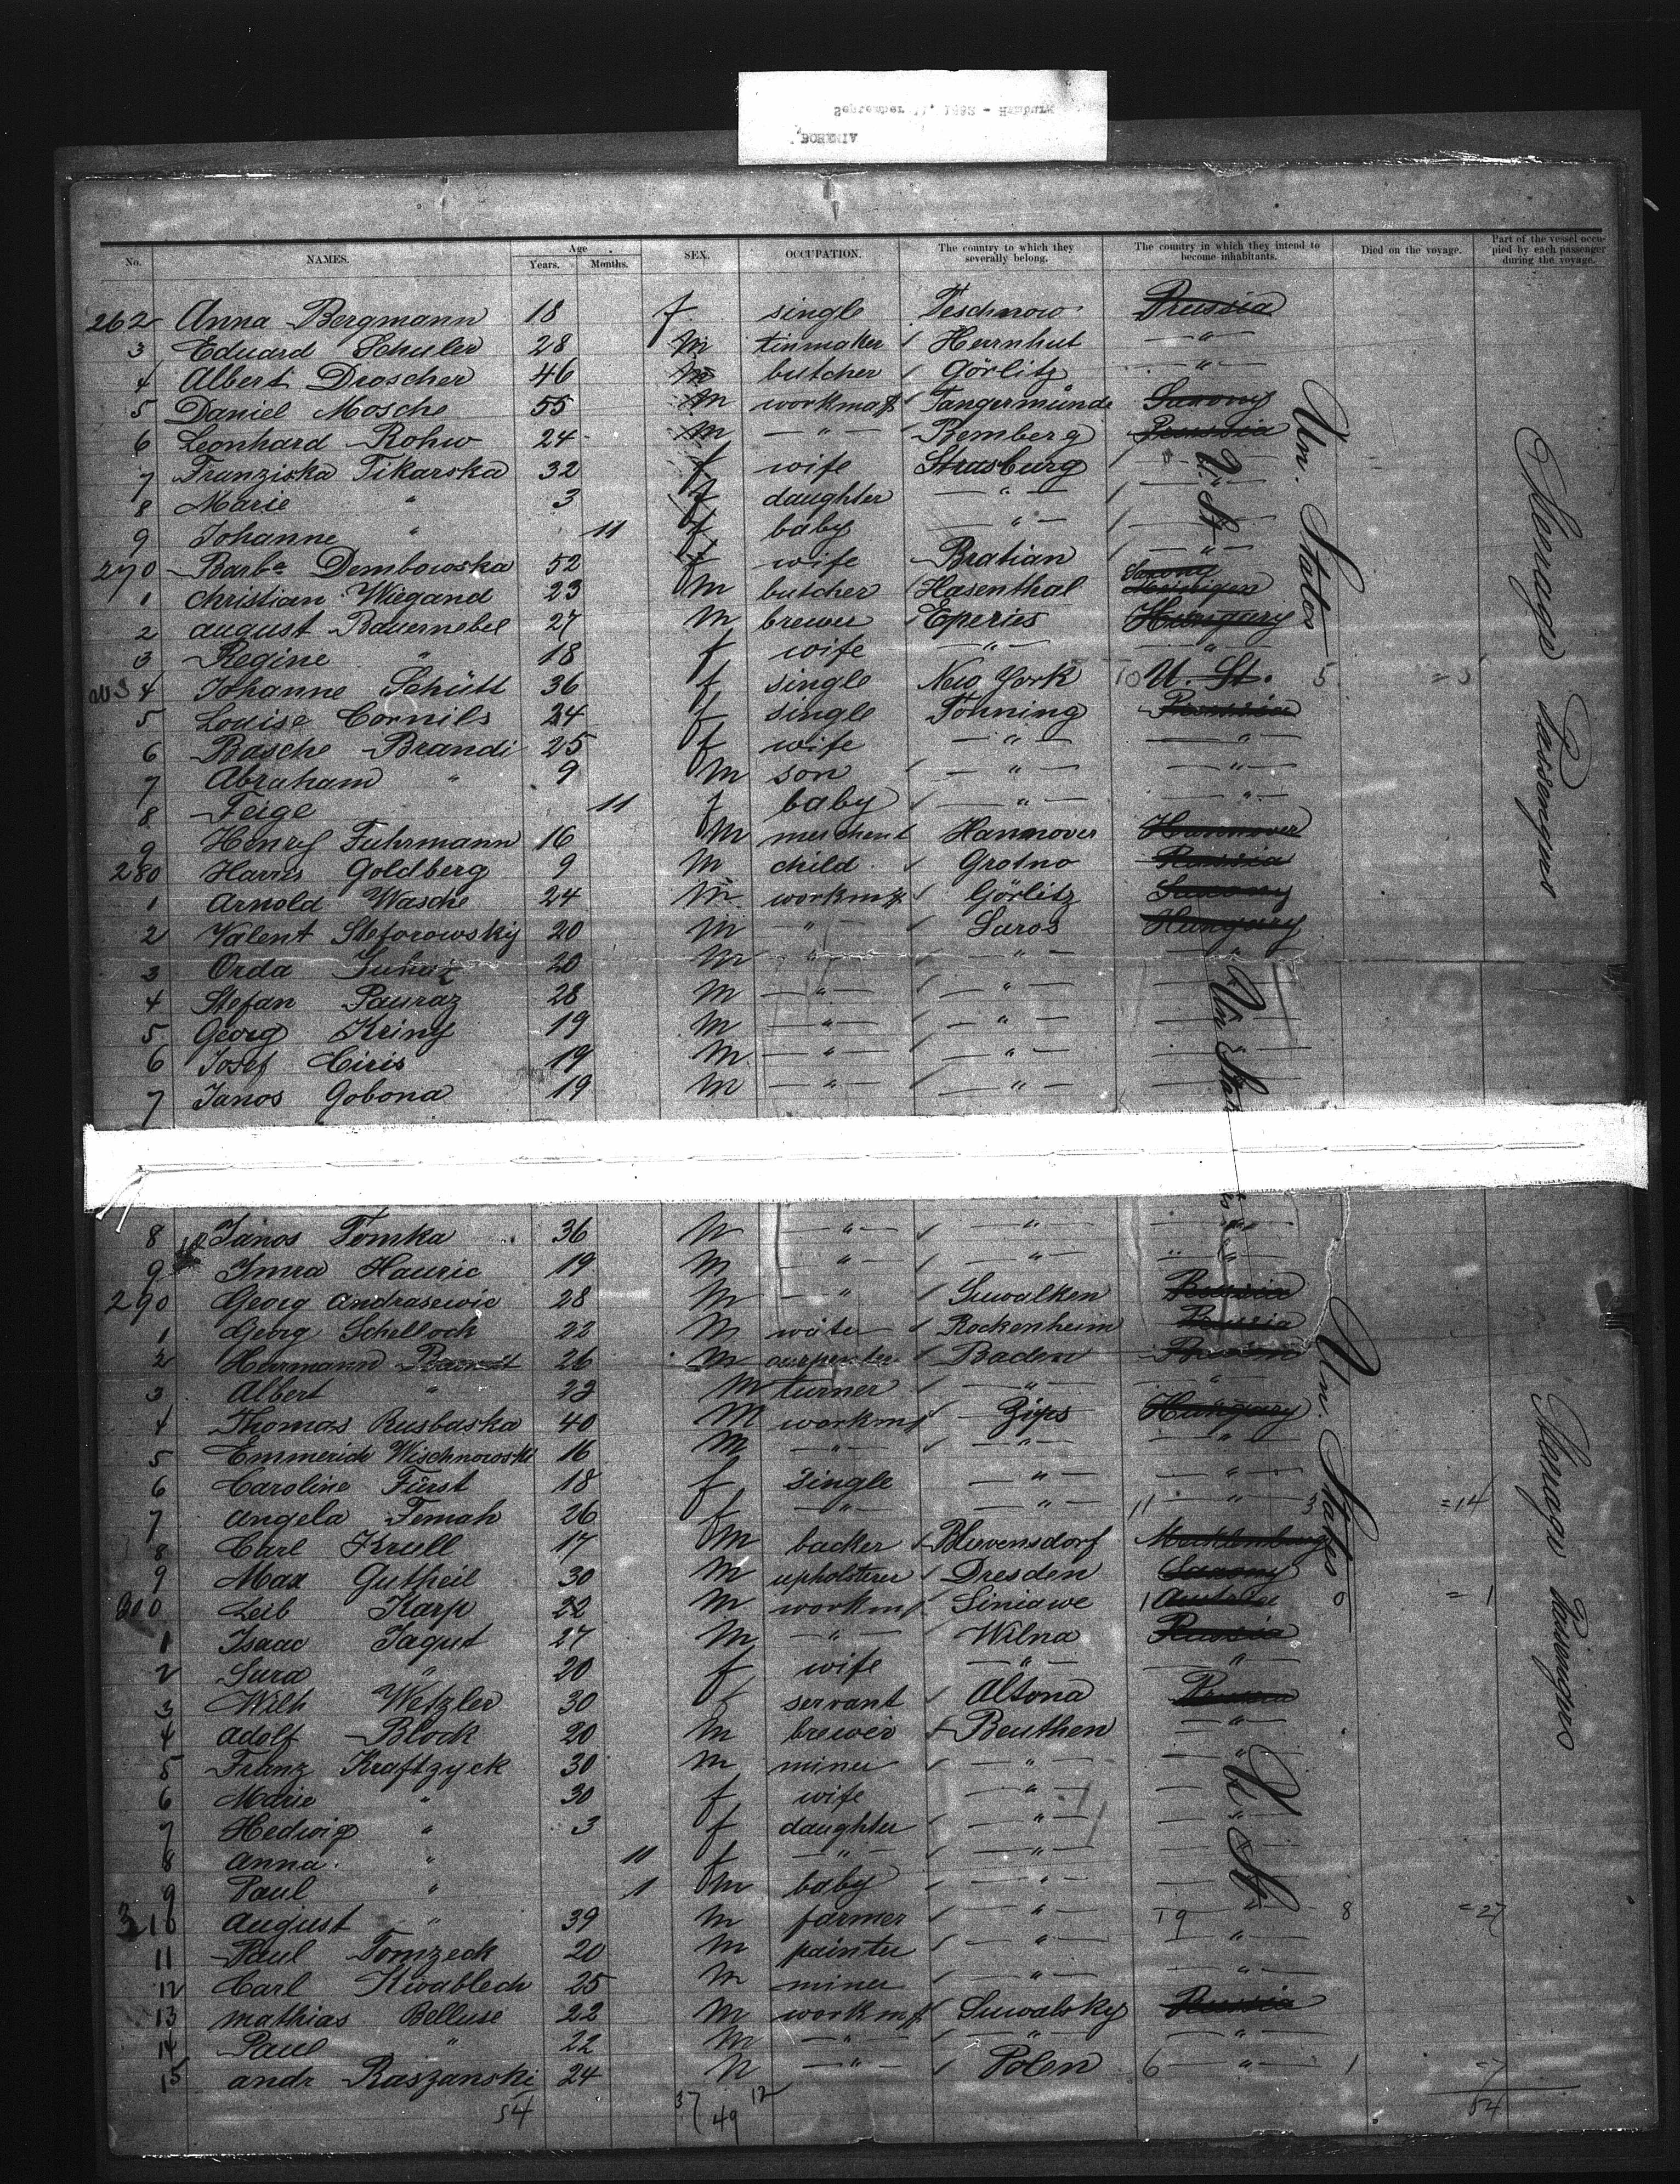 BOHEMIA
No. NAMES. Age Years. Months. SEX. OCCUPATION. The country to which they severally belong. The country in which they intend to become inhabitants. Died on the voyage. Part of the vessel occupied by each passenger during the voyage.
262 Anna Bergmann 18 f single Teschnow Prussia
3 Eduard Schuler 28 m tinmaker Herrnhut — " —
4 Albert Droscher 46 m butcher Görlitz — " —
5 Daniel Mosche 55 m workman Tangermünde Saxony
6 Leonhard Rohw 24 m — " — Bemberg Prussia
7 Franziska Tikarska 32 f wife Strasburg "
8 Marie " 3 f daughter — " — "
9 Johanne " 11 f baby — " — "
270 Barbe Dembowska 52 f wife Bratian — " —
1 Christian Wiegand 23 m butcher Hasenthal Saxony
2 August Bauernebel 27 m brewer Eperies Hungary
3 Regine " 18 f wife — " — — " —
4 Johanne Schütt 36 f single New York 10 U. St. 5 = 5
5 Louise Cornils 24 f single Tönning Prussia
6 Basche Brandi 25 f wife — " — — " —
7 Abraham " 9 m son — " — — " —
8 Feige 11 f baby — " — — " —
9 Henry Fuhrmann 16 m merchent Hannover Hannover
280 Harris Goldberg 9 m child Grotno Russia
1 Arnold Wasche 24 m workm Görlitz Saxony
2 Valent Steforowsky 20 m — " — Saros Hungary
3 Orda 20 m — " — — " — — " —
4 Stefan Pauraz 28 m — " — — " — — " —
5 Georg Kriny 19 m — " — — " — — " —
6 Josef Ciris 19 m — " — — " — — " —
7 Janos Gobona 19 m — " — — " —
8 Janos Tomka 36 m — " — — " — — " —
9 Imra Hauric 19 m — " — — " — — " —
290 Georg Andrasewic 28 m — " — Suwalken Russia
1 Georg Schellock 22 m waiter Rockenheim Prussia
2 Hermann 26 m carpenter Baden
3 Albert " 23 m turner — " — "
4 Thomas Rusbaska 40 m workm Zips Hungary
5 Emmerich Wischnowski 16 m — " — — " — — " —
6 Caroline Fürst 18 f single — " — — " —
7 Angela Femah 26 f — " — — " — 11 — " — 3 = 14
8 Carl Krull 17 m backer Blievensdorf Mecklenburg
9 Max Gutheil 30 m upholsterer Dresden Saxony
300 Leib Karp 22 m workm Siniawe 1 Austria 0 = 1
1 Isaac Jagut 27 m — " — Wilna Russia
2 Sura " 20 f wife — " — — " —
3 Wilh Wetzler 30 f servant Altona Prussia
4 Adolf Block 20 m brewer Beuthen — " —
5 Franz Kraftzyck 30 m miner — " — — " —
6 Marie " 30 f wife — " — — " —
7 Hedwig " 3 f daughter — " — — " —
8 Anna " 11 f — " — — " — — " —
9 Paul " 1 m baby — " — — " —
310 August " 39 m farmer — " — 19 — " — 8 = 27
11 Paul Tomzeck 20 m painter — " — — " —
12 Carl Kwablech 25 m miner — " — — " —
13 Mathias Belluse 22 m workm Suwalsky Russia
14 Paul " 22 m — " — — " — — " —
15 Andr Raszanski 24 m — " — Polen 6 — " — 1 = 7
54 37 12 49 54
Un. States
U. St.
Un. States
Un. States
U. St.
Steerage Passengers
Steerage Passengers